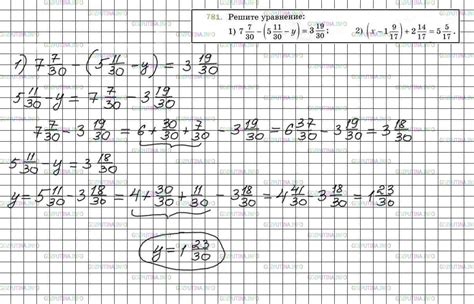 781. Решите уравнение:
1) 7 7/30 − (5 11/30 − y) = 3 19/30; 2) (x − 1 9/17) + 2 14/17 = 5 5/17.
1) 7 7/30 − (5 11/30 − y) = 3 19/30
5 11/30 − y = 7 7/30 − 3 19/30
7 7/30 − 3 19/30 = 6 + 30/30 + 7/30 − 3 19/30 = 6 37/30 − 3 19/30 = 3 18/30
5 11/30 − y = 3 18/30
y = 5 11/30 − 3 18/30 = 4 + 30/30 + 11/30 − 3 18/30 = 4 41/30 − 3 18/30 = 1 23/30
y = 1 23/30